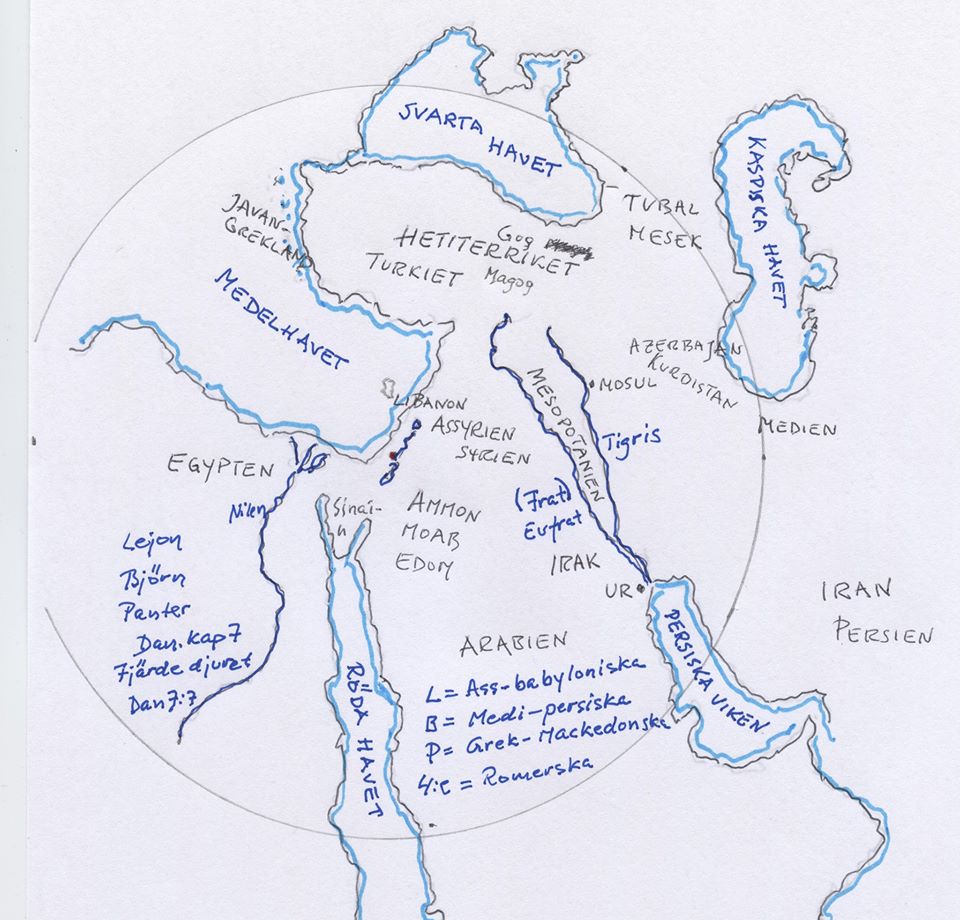 SVARTA
HAVET
KASPISKA HAVET
TUBAL
MESEK
JAVAN-
GREKLAND
Gog
HETITERRIKET
TURKIET Magog
MEDELHAVET
AZERBAJEN
KURDISTAN
MOSUL
MEDIEN
LIBANON
ASSYRIEN
SYRIEN
MESOPOTANIEN
Tigris
EGYPTEN
Nilen
Sinai-
n
AMMON
MOAB
EDOM
(Frat)
Eufrat
IRAK
UR
IRAN
PERSIEN
Lejon
Björn
Panter
Dan. kap 7
Fjärde djuret
Dan 7:7
ARABIEN
L = Ass-babyloniska
B = Medi-persiska
P = Grek-Mackedonska
4:e = Romerska
RÖDA HAVET
PERSISKA VIKEN